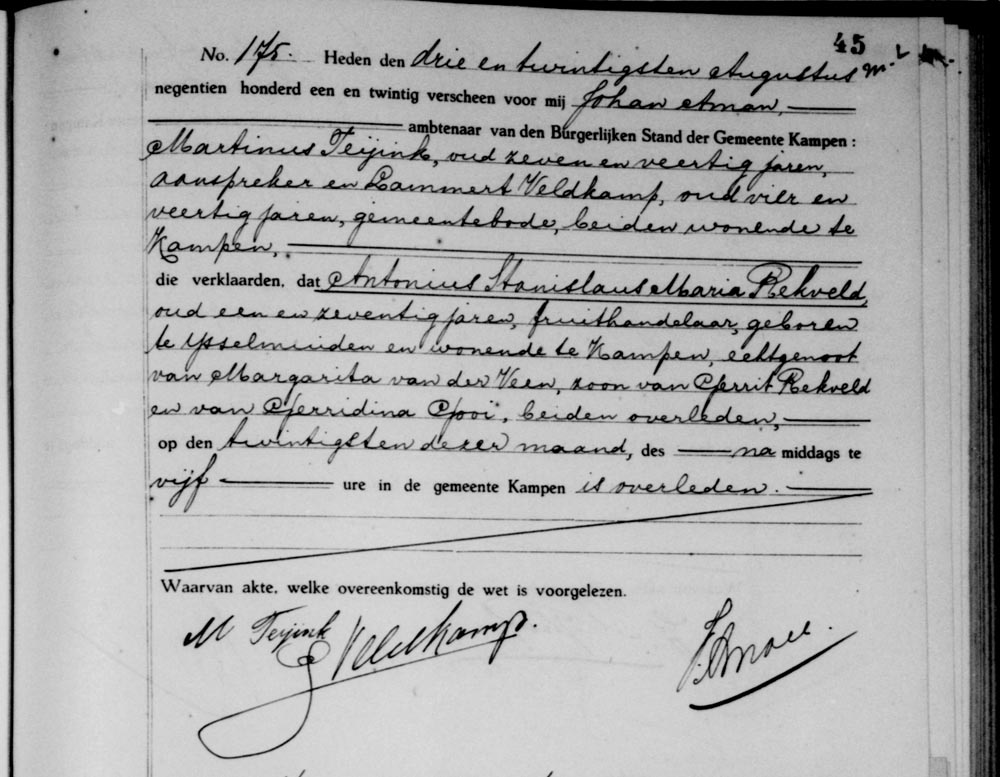 45
No. 175. Heden den drie en twintigsten Augustus
negentien honderd een en twintig verscheen voor mij Johan Aman,
ambtenaar van den Burgerlijken Stand der Gemeente Kampen :
Martinus Teijink, oud zeven en veertig jaren,
aanspreker en Lammert Veldkamp, oud vier en
veertig jaren, gemeentebode, beiden wonende te
Kampen,
die verklaarden, dat Antonius Stanislaus Maria Rekveld,
oud een en zeventig jaren, fruithandelaar, geboren
te IJsselmuiden en wonende te Kampen, echtgenoot
van Margarita van der Veen, zoon van Gerrit Rekveld
en van Gerridina Gooi, beiden overleden,
op den twintigsten dezer maand, des na middags te
vijf ure in de gemeente Kampen is overleden.
Waarvan akte, welke overeenkomstig de wet is voorgelezen.
M Teijink
L Veldkamp.
J. Aman.